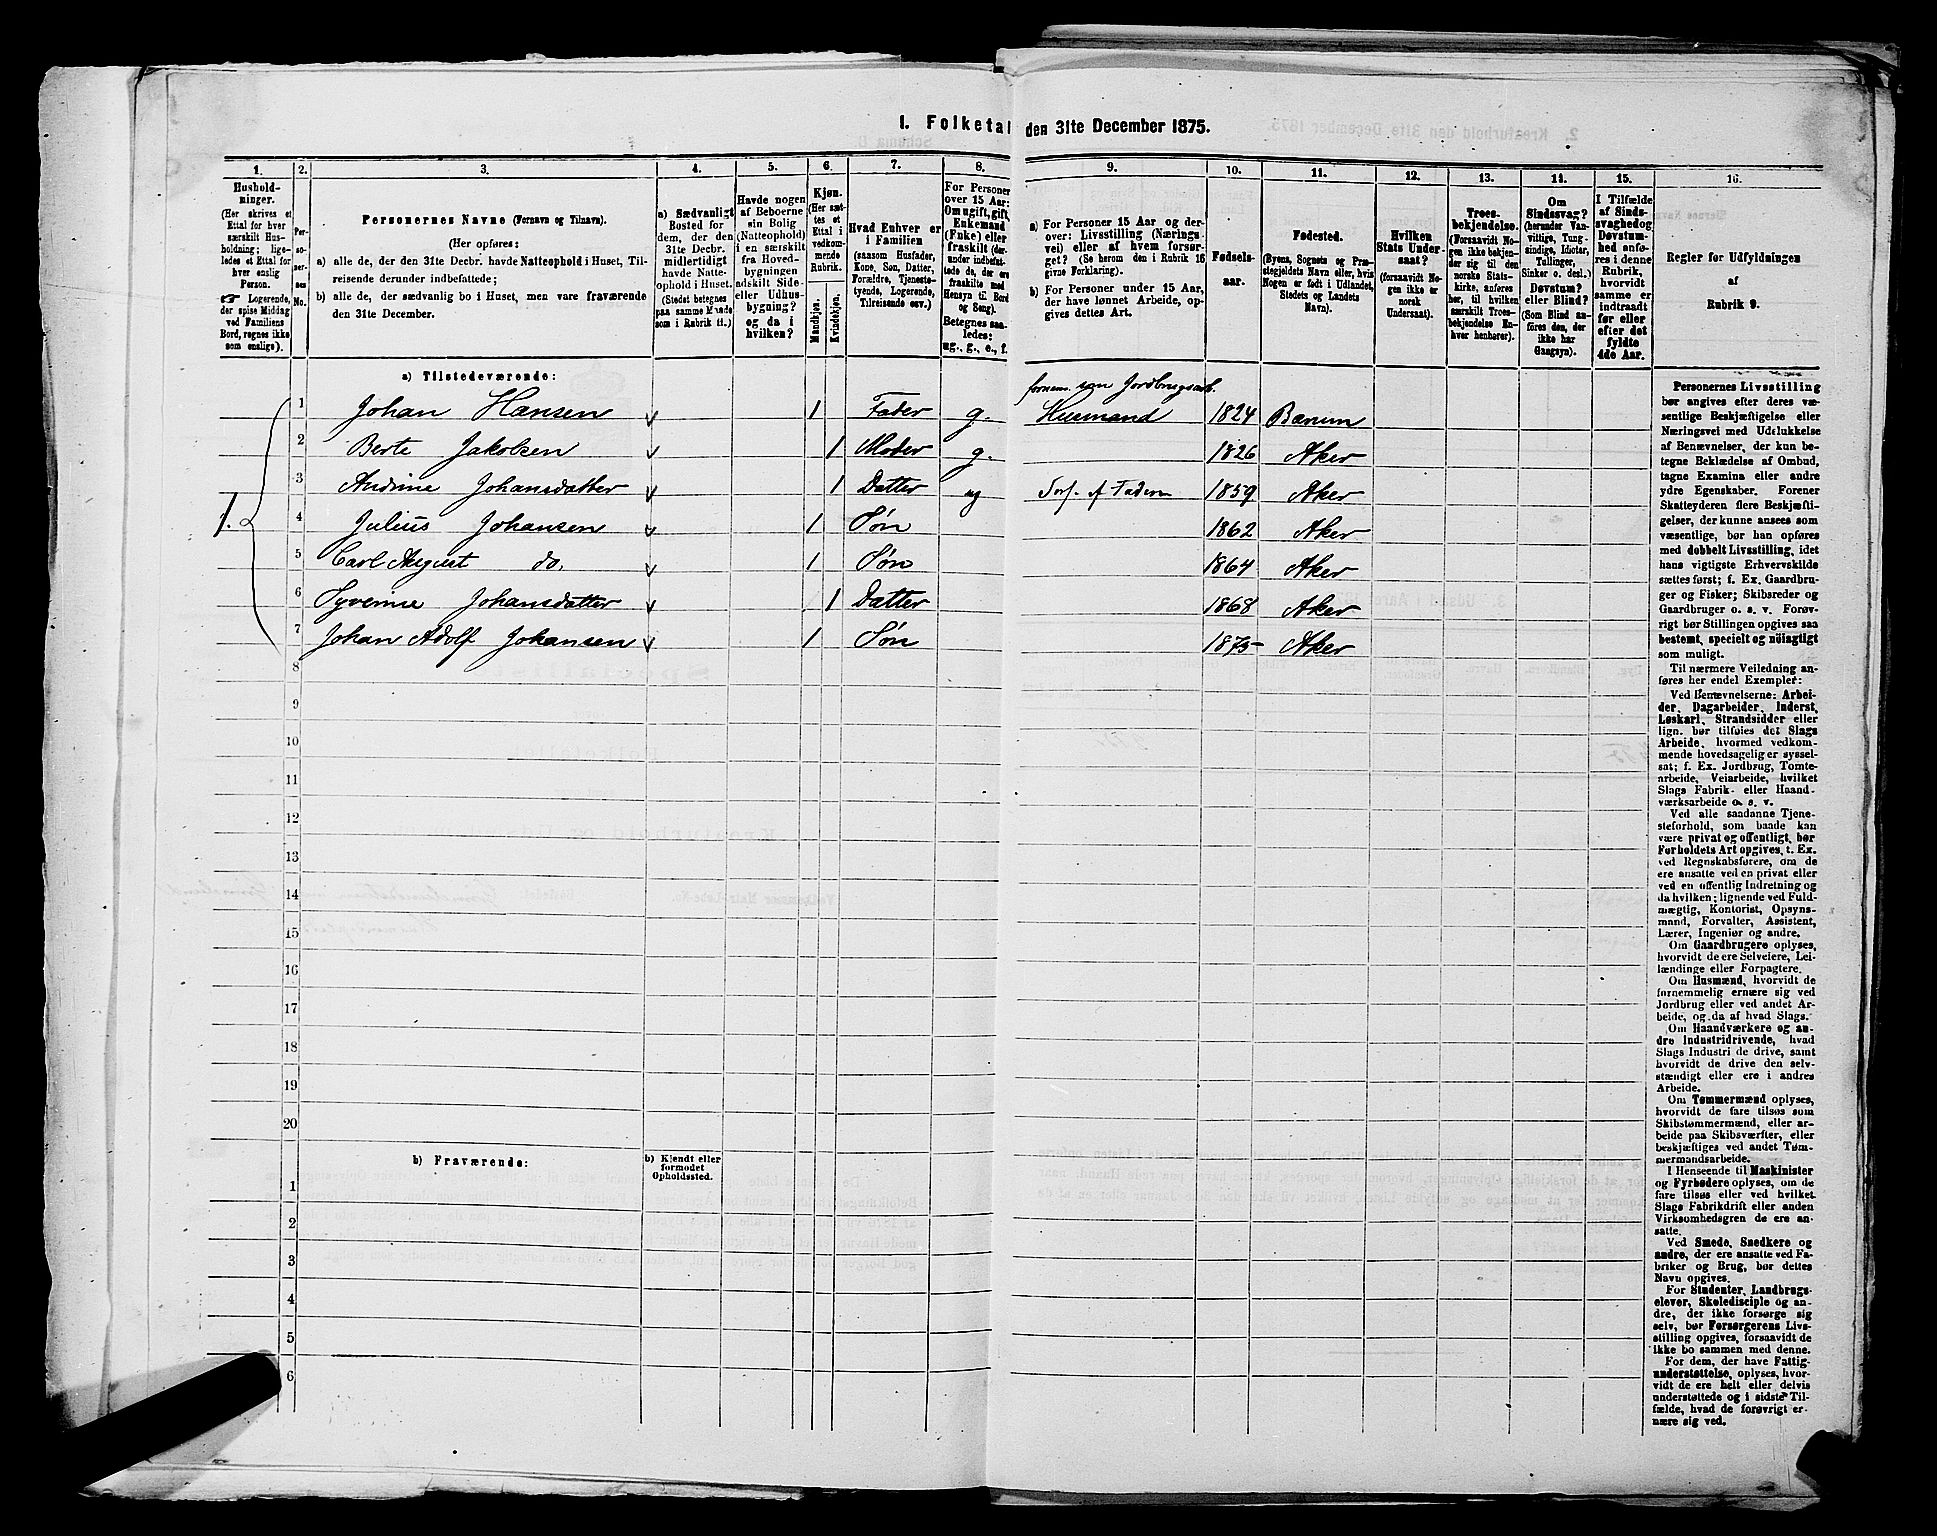 I. Folketal den 31te December 1875.
1. 2. 3. 4. 5. 6. 7. 8. 9. 10. 11. 12. 13. 14. 15. 16.
Husholdninger.
(Her skrives et Ettal for hver særskilt Husholdning; ligeledes et Ettal for hver enslig Person.
Logerende, der spise Middag ved Familiens Bord, regnes ikke som enslige).
Personernes No.
Personernes Navne (Fornavn og Tilnavn).
(Her opføres:
a) alle de, der den 31te Decbr. havde Natteophold i Huset, Tilreisende derunder indbefattede;
b) alle de, der sædvanlig bo i Huset, men vare fraværende den 31te December.
a) Sædvanligt Bosted for dem, der den 31te Decbr. midlertidigt havde Natteophold i Huset.
(Stedet betegnes paa samme Maade som i Rubrik 11.)
Havde nogen af Beboerne sin Bolig (Natteophold) i en særskilt fra Hovedbygningen adskilt Side- eller Udhusbygning? og da i hvilken?
Kjøn.
(Her sættes et Ettal i vedkommende Rubrik.
Mandkjøn.
Kvindekjøn.
Hvad Enhver er i Familien
(saasom Husfader, Kone, Søn, Datter, Forældre, Tjenestetyende, Logerende, Tilreisende osv.)
For Personer over 15 Aar: Om ugift, gift, Enkemand (Enke) eller fraskilt (derunder indbefattede de, der ere fraskilte med Hensyn til Bord og Seng).
Betegnes saaledes: ug., g., e., f.
a) For Personer 15 Aar og derover: Livsstilling (Næringsvei) eller af hvem forsørget? (Se herom den i Rubrik 16 givne Forklaring).
b) For Personer under 15 Aar, der have lønnet Arbeide, opgives dettes Art.
Fødselsaar.
Fødested.
(Byens, Sognets og Præstegjeldets Navn eller, hvis Nogen er født i Udlandet, Stedets og Landets Navn).
Hvilken Stats Undersaat?
(forsaavidt Nogen ikke er norsk Undersaat).
Troesbekjendelse.
(Forsaavidt Nogen ikke bekjender sig til den norske Statskirke, anføres her, til hvilken særskilt Troesbekjendelse Enhver henhører).
Om Sindssvag? (herunder Vanvittige, Tungsindige, Idioter, Tullinger, Sinker o. desl.) Døvstum? eller Blind? (Som Blind anføres den, der ikke har Gangsyn).
I Tilfælde af Sindssvaghed og Døvstumhed anføres i denne Rubrik, hvorvidt samme er indtraadt før eller efter det fyldte 4de Aar.
Regler før Udfyldningen
af
Rubrik 9.
a) Tilstedeværende:
fornem. son Jordbrugsarb.
1 Johan Hansen 1 Fader g. Husmand 1824 Bærum
2 Berte Jakobsen 1 Moder g. 1826 Aker
3 Andrine Johansdatter 1 Datter ug Fors. af Faderen 1859 Aker
1. 4 Julius Johansen 1 Søn 1862 Aker
5 Carl August do. 1 Søn 1864 Aker
6 Syverine Johansdatter 1 Datter 1868 Aker
7 Johan Adolf Johansen 1 Søn 1875 Aker
8
9
10
11
12
13
14
15
16
17
18
19
20
b) Fraværende:
b) Kjendt eller formodet Opholdssted.
1
2
3
4
5
6
Personernes Livsstilling
bør angives efter deres væ-
sentlige Beskjæftigelse eller
Næringsvei med Udelukkelse
af Benævnelser, der kun be-
tegne Beklædelse af Ombud,
tagne Examina eller andre
ydre Egenskaber. Forener
Skatteyderen flere Beskjæfti-
gelser, der kunne ansees som
væsentlige, bør han opføres
med dobbelt Livsstilling, idet
hans vigtigste Erhvervskilde
sættes først; f. Ex. Gaardbru-
ger og Fisker; Skibsreder og
Gaardbruger o. s. v. Forøv-
rigt bør Stillingen opgives saa
bestemt, specielt og nøiagtigt
som muligt.
Til nærmere Veiledning an-
føres her endel Exempler:
Ved Benævnelserne: Arbei-
der, Dagarbeider, Inderst,
Løskarl, Strandsidder eller
lign. bør tilføies det Slags
Arbeide, hvormed vedkom-
mende hovedsagelig er syssel-
sat; f. Ex. Jordbrug, Tomte-
arbeide, Veiarbeide, hvilket
Slags Fabrik- eller Haand-
værksarbeide o. s. v.
Ved alle saadanne Tjene-
steforhold, som baade kan
være privat og offentligt, bør
Forholdets Art opgives, f. Ex.
ved Regnskabsførere, om de
ere ansatte ved en privat eller
ved en offentlig Indretning og
da hvilken; lignende ved Fuld-
mægtig, Kontorist, Opsyns-
mand, Forvalter, Assistent,
Lærer, Ingeniør og andre.
Om Gaardbrugere oplyses,
hvorvidt de ere Selveiere, Lei-
lændinge eller Forpagtere.
Om Husmænd, hvorvidt de
fornemmelig ernære sig ved
Jordbrug eller ved andet Ar-
beide, og da af hvad Slags.
Om Haandværkere og an-
dre Industridrivende, hvad
Slags Industri de drive, samt
hvorvidt de drive den selv-
stændigt eller ere i andres
Arbeide.
Om Tømmermænd oplyses,
hvorvidt de fare tilsøs som
Skibstømmermænd, eller ar-
beide paa Skibsværfter, eller
beskjæftiges ved andet Tøm-
mermandsarbeide.
I Henseende til Maskinister
og Fyrbødere oplyses, om de
fare tilsøs eller ved hvilket
Slags Fabrikdrift eller anden
Virksomhedsgren de ere an-
satte.
Ved Smede, Snedkere og
andre, der ere ansatte ved Fa-
briker og Brug, bør dettes
Navn opgives.
For Studenter, Landbrugs-
elever, Skoledisciple og an-
dre, der ikke forsørge sig
selv, bør Forsørgerens Livs-
stilling opgives, forsaavidt de
ikke bo sammen med denne.
For dem, der have Fattig-
understøttelse, oplyses, hvor-
vidt de ere helt eller delvis
understøttede og i sidste Til-
fælde, hvad de forøvrigt er-
nære sig ved.